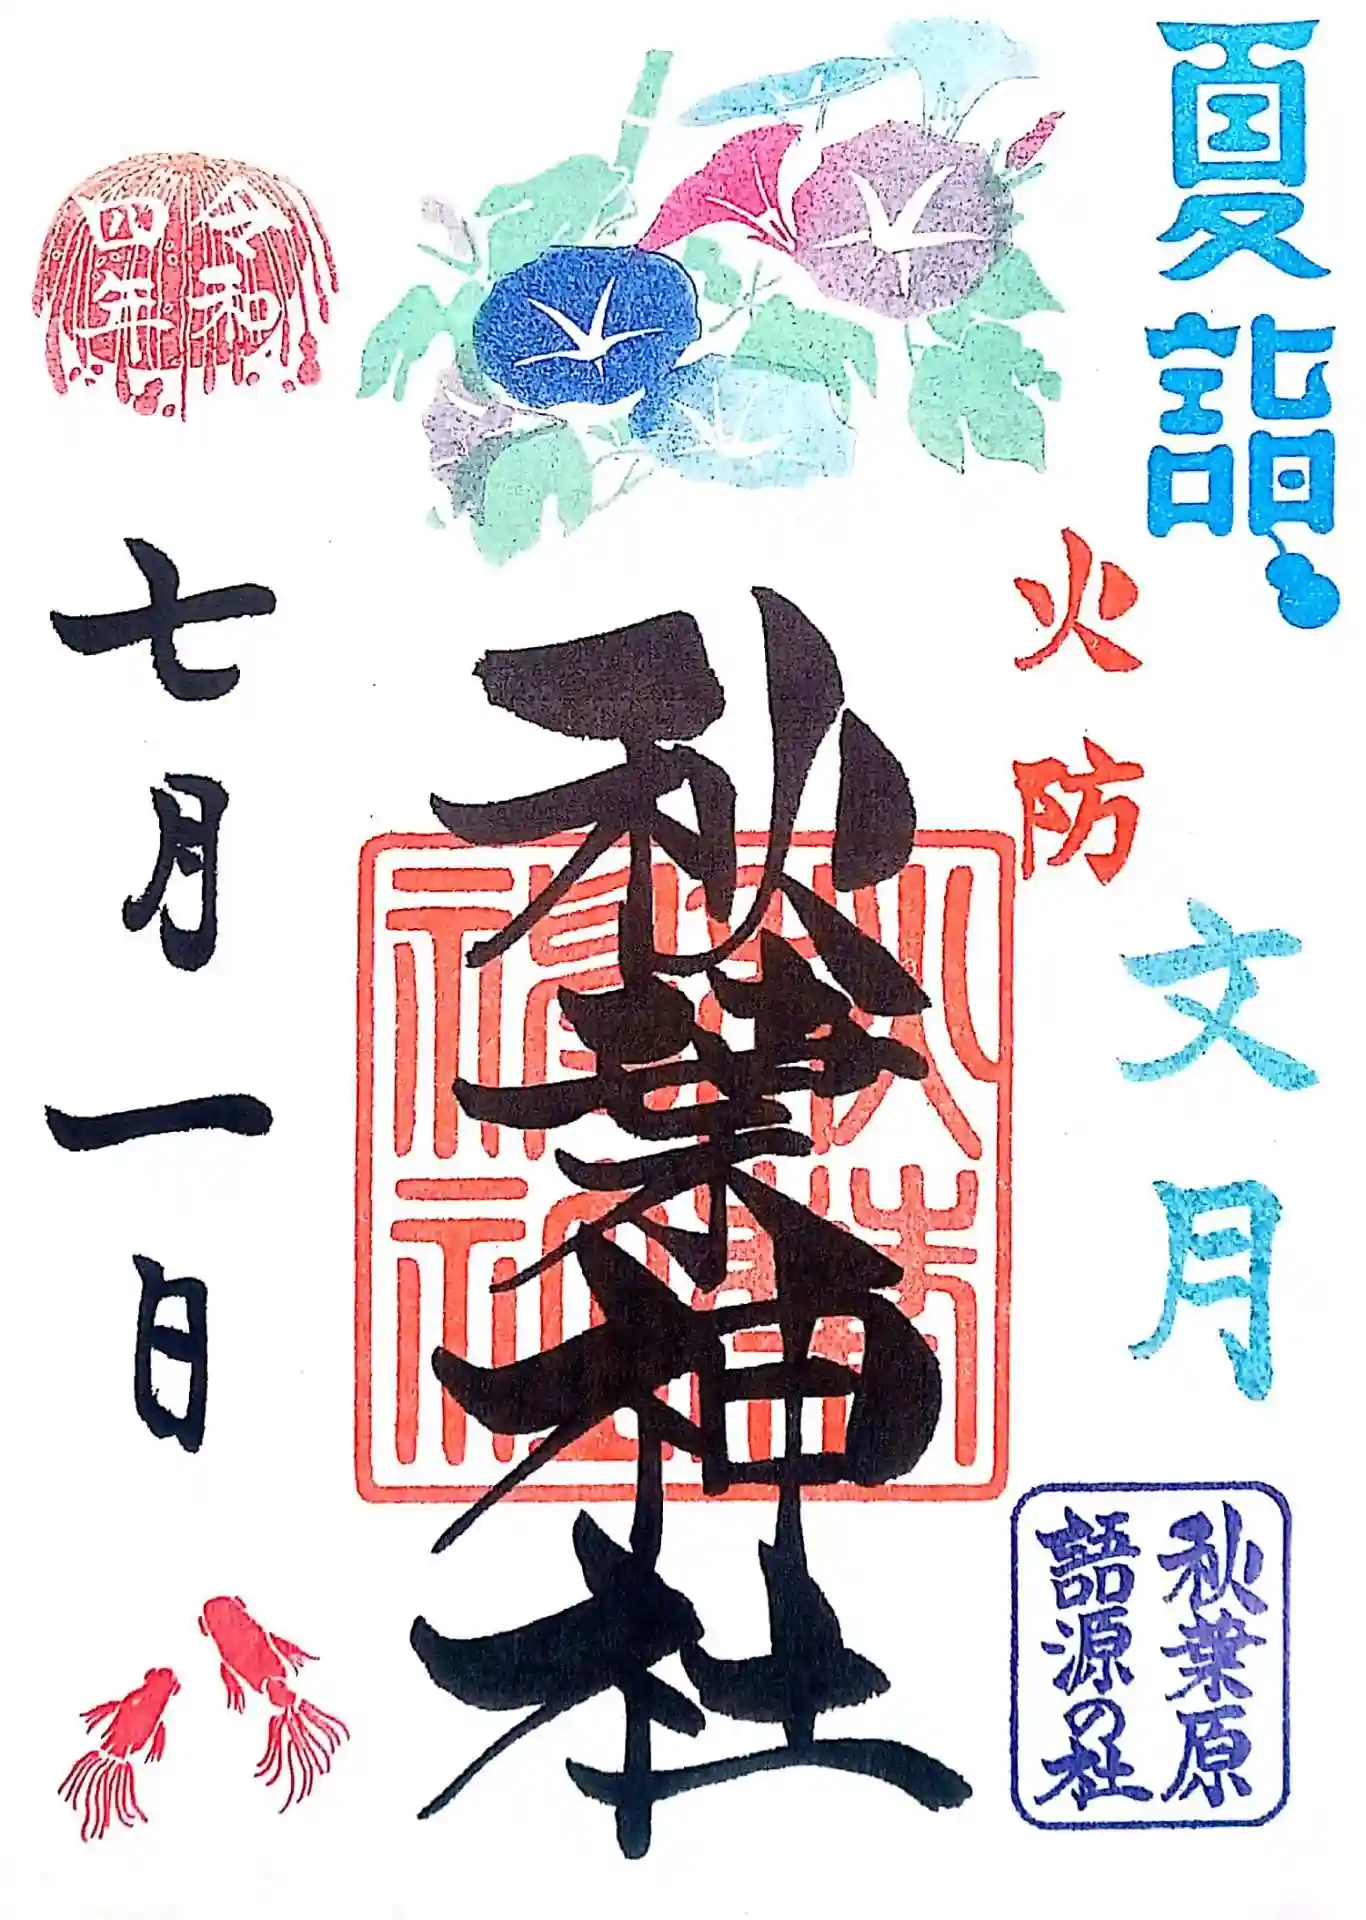 夏詣
火防
文月
秋葉原
語源の社
秋葉神社
秋葉
神社
令和
四年
七月一日